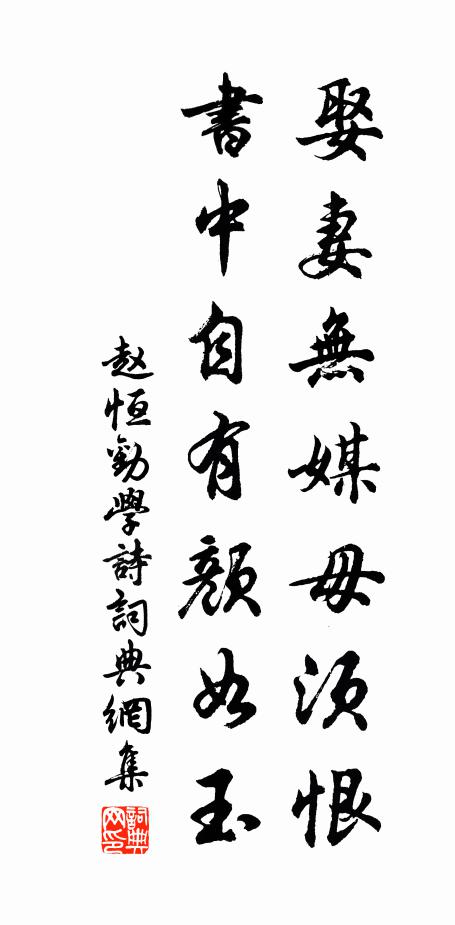 娶妻無媒毋須恨
書中自有顏如玉
赵恒勸學詩詞典網集
詞典
网印